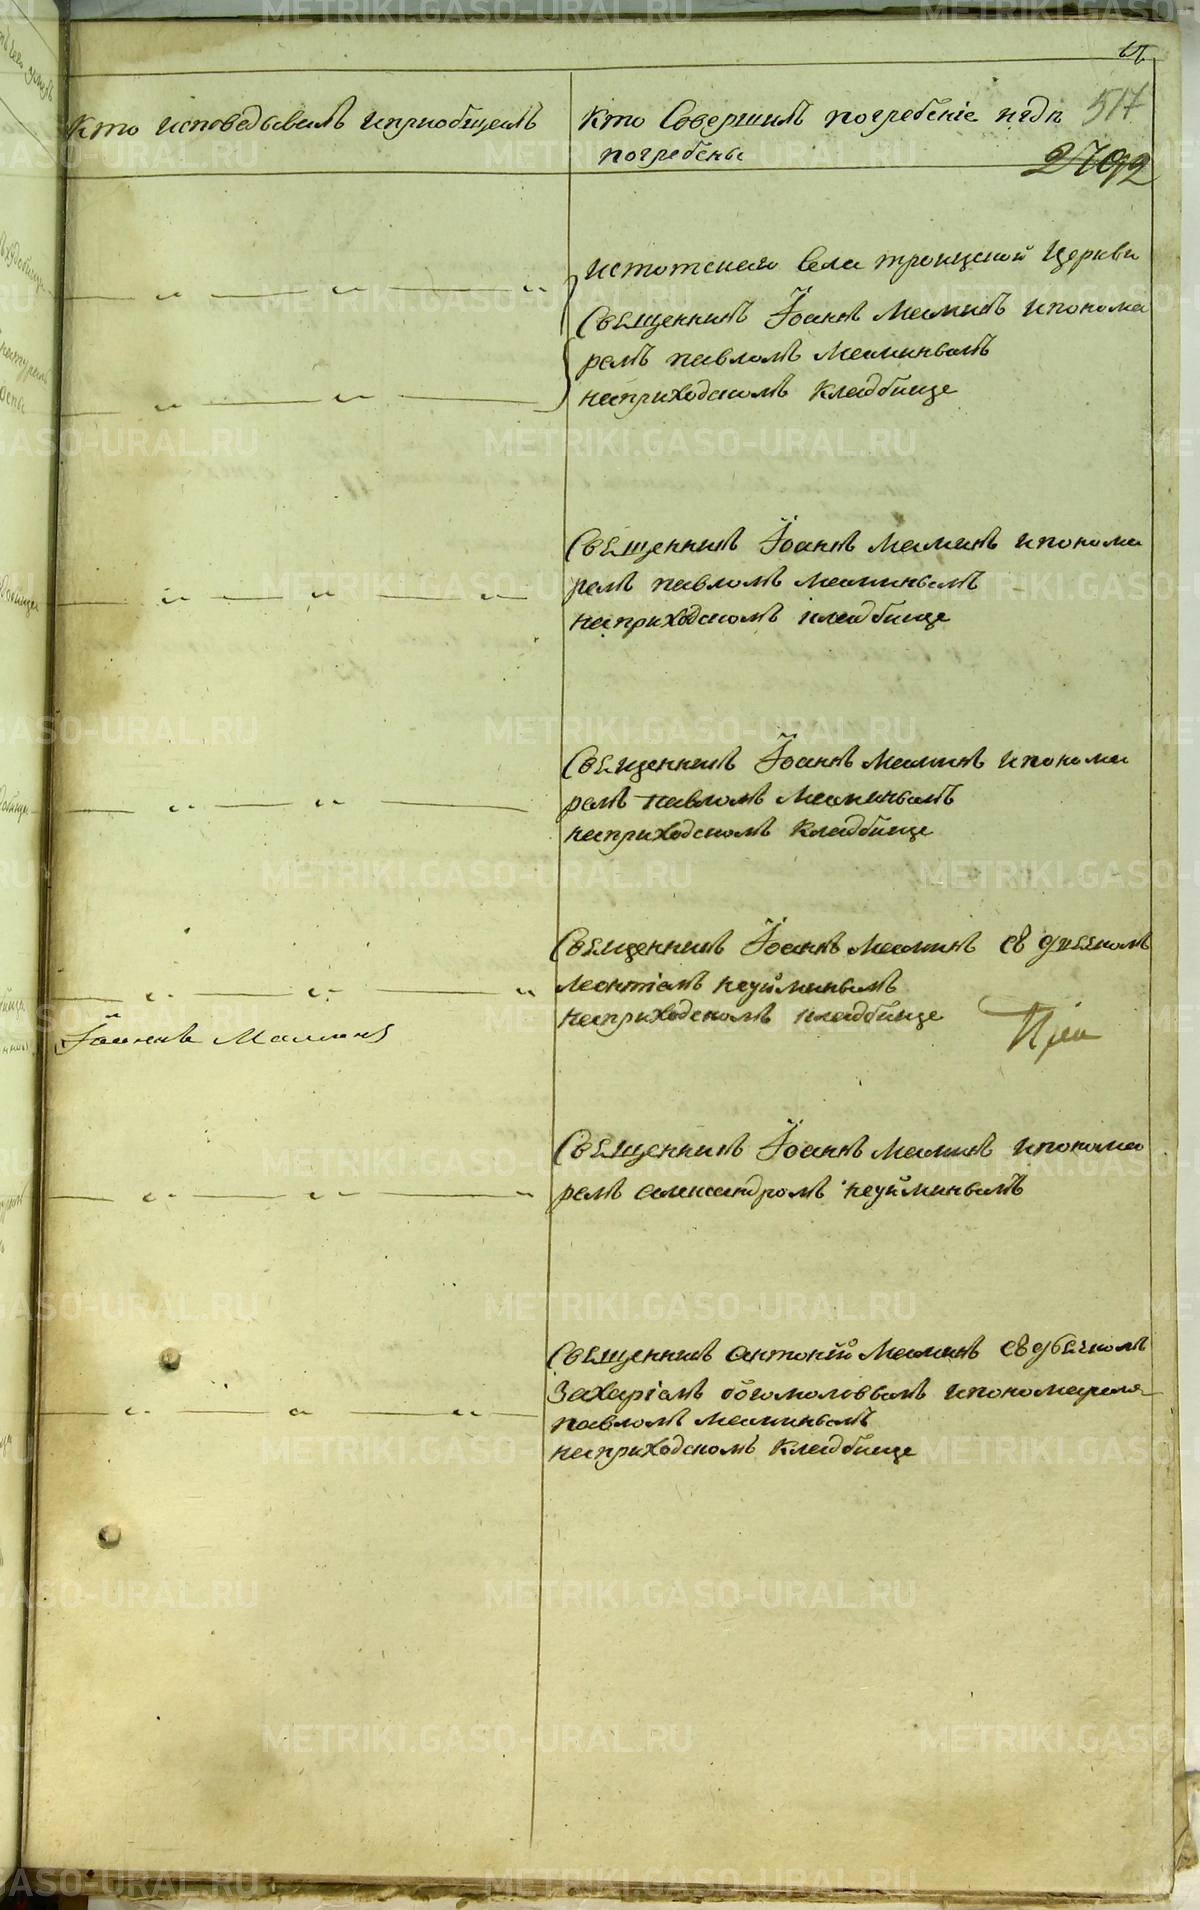 Кто исповедывалъ и приобщалъ
Кто Совершилъ погребеніе и гдѣ
погребены
517
2792
Истотскаго села троицкой Церкви
Священникъ Іоаннъ Маминъ и понома
ремъ павломъ Маминымъ
на приходскомъ Кладбище
Священникъ Іоаннъ Маминъ и понома
ремъ павломъ Маминымъ
на приходскомъ кладбище
Священникъ Іоаннъ Маминъ и понома
ремъ павломъ Маминымъ
на приходскомъ Кладбище
Священникъ Іоаннъ Маминъ съ дьякомъ
Леонтіемъ неуйминымъ
на приходскомъ кладбище
Іоаннъ Маминъ
Священникъ Іоаннъ Маминъ и понома
ремъ александромъ неуйминымъ
Священникъ антоній Маминъ съ дьячкомъ
Захаріемъ богомоловымъ и пономаремъ
павломъ Маминымъ
на приходскомъ Кладбище
METRIKI.GASO-URAL.RU